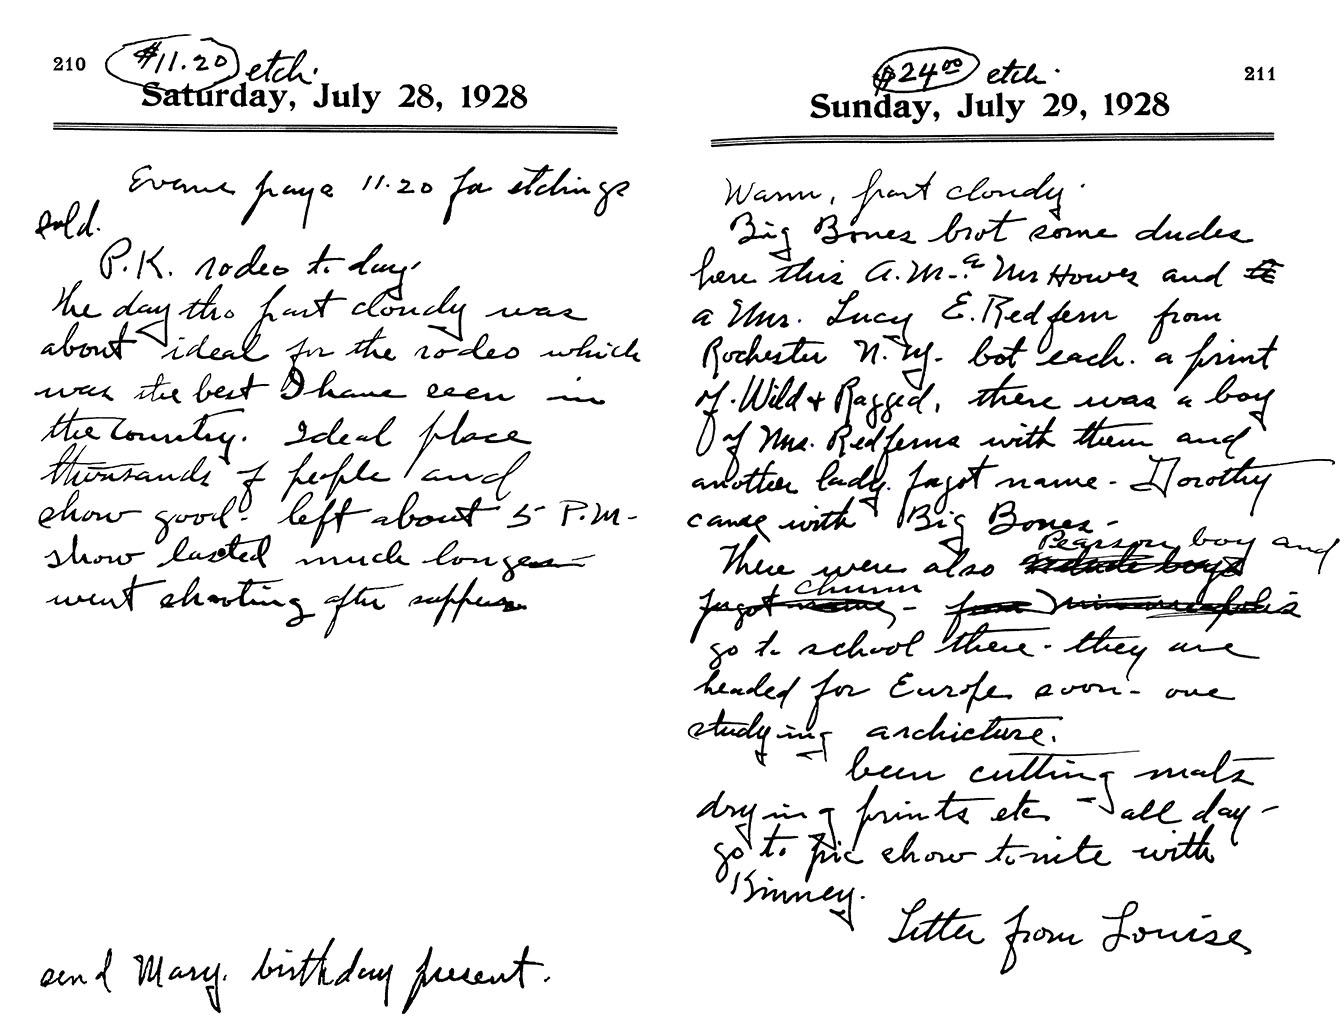 210 $11.20 etch.
Saturday, July 28, 1928
Evans pays 11.20 for etchings
sold.
P.K. rodeo to day.
The day tho part cloudy was
about ideal for the rodeo which
was the best I have seen in
the country. Ideal place
thousands of people and
show good - left about 5 P.M. -
show lasted much longer -
went shooting after supper
send Mary. birthday present.
$24.00 etch. 211
Sunday, July 29, 1928
Warm, part cloudy.
Big Bones brot some dudes
here this A.M. - a Mrs Howes and
a Mrs. Lucy E. Redfern from
Rochester N.Y. - bot each. a print
of Wild & Ragged, there was a boy
of Mrs. Redferns with them and
another lady. forgot name - Dorothy
came with Big Bones -
Pearson boy and
There were also
chum
forgot name -
go to school there - they are
headed for Europe soon - one
studying archicture.
been cutting mats
drying prints etc - all day -
go to pic show tonite with
Kinney.
Letter from Louise